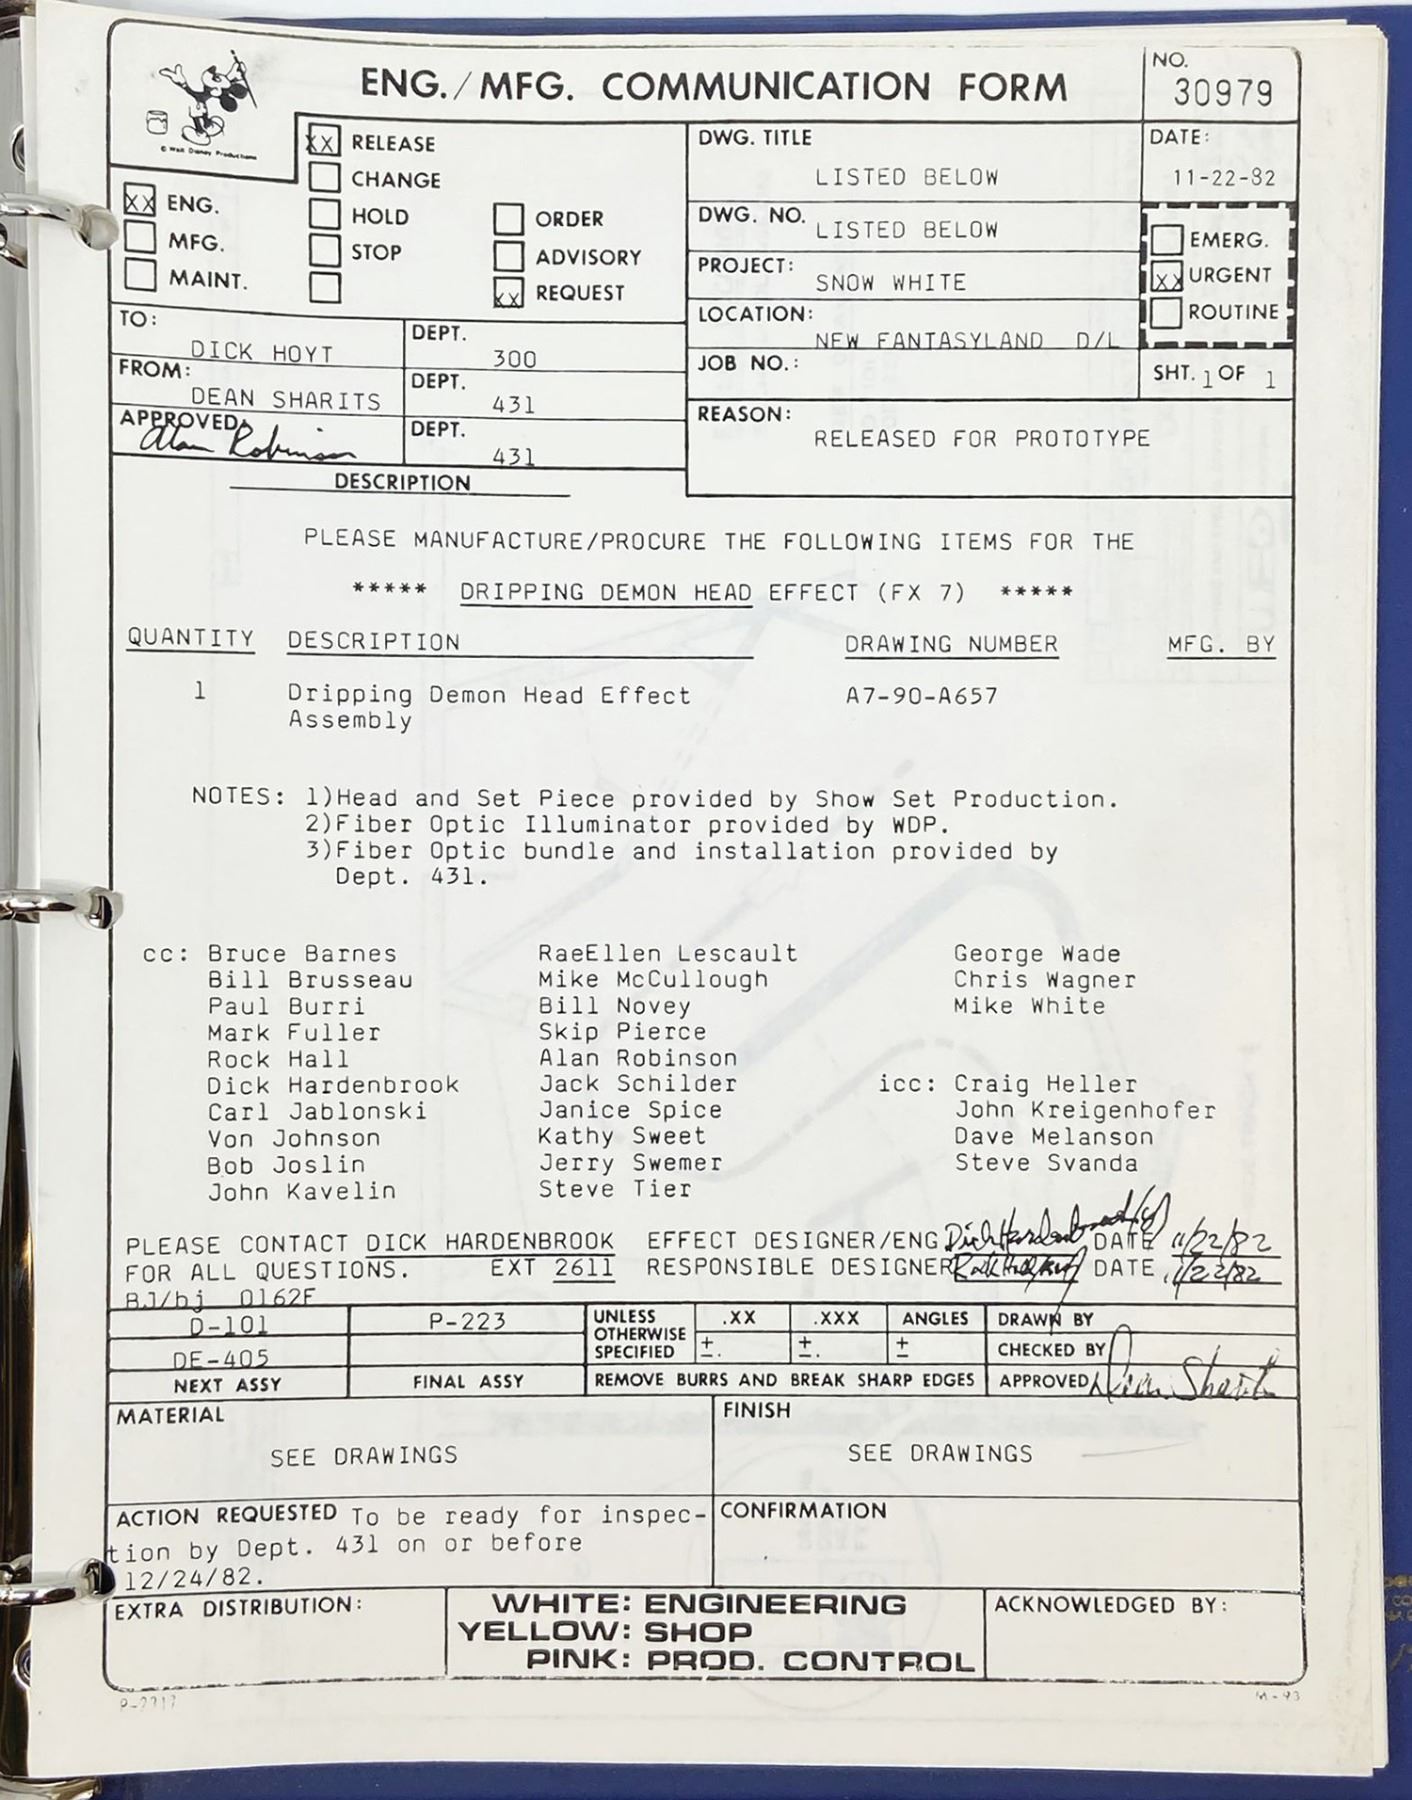 ENG./MFG. COMMUNICATION FORM
NO.
30979
© Walt Disney Productions
XX RELEASE
CHANGE
HOLD
STOP
XX ENG.
MFG.
MAINT.
ORDER
ADVISORY
XX REQUEST
DWG. TITLE
LISTED BELOW
DATE:
11-22-82
DWG. NO.
LISTED BELOW
PROJECT:
SNOW WHITE
LOCATION:
NEW FANTASYLAND D/L
JOB NO.:
EMERG.
XX URGENT
ROUTINE
SHT. 1 OF 1
TO:
DICK HOYT
DEPT.
300
FROM:
DEAN SHARITS
DEPT.
431
APPROVED:
Alan Robinson
DEPT.
431
REASON:
RELEASED FOR PROTOTYPE
DESCRIPTION
PLEASE MANUFACTURE/PROCURE THE FOLLOWING ITEMS FOR THE
***** DRIPPING DEMON HEAD EFFECT (FX 7) *****
QUANTITY DESCRIPTION DRAWING NUMBER MFG. BY
1 Dripping Demon Head Effect A7-90-A657
Assembly
NOTES: 1)Head and Set Piece provided by Show Set Production.
2)Fiber Optic Illuminator provided by WDP.
3)Fiber Optic bundle and installation provided by
Dept. 431.
cc: Bruce Barnes RaeEllen Lescault George Wade
Bill Brusseau Mike McCullough Chris Wagner
Paul Burri Bill Novey Mike White
Mark Fuller Skip Pierce
Rock Hall Alan Robinson
Dick Hardenbrook Jack Schilder icc: Craig Heller
Carl Jablonski Janice Spice John Kreigenhofer
Von Johnson Kathy Sweet Dave Melanson
Bob Joslin Jerry Swemer Steve Svanda
John Kavelin Steve Tier
PLEASE CONTACT DICK HARDENBROOK EFFECT DESIGNER/ENG Dick Hardenbrook DATE 11/22/82
FOR ALL QUESTIONS. EXT 2611 RESPONSIBLE DESIGNER Rock Hall DATE 11/22/82
BJ/bj 0162F
D-101 P-223
DE-405
NEXT ASSY FINAL ASSY
UNLESS
OTHERWISE
SPECIFIED
.XX .XXX ANGLES
±. ±. ±
REMOVE BURRS AND BREAK SHARP EDGES
DRAWN BY
CHECKED BY
APPROVED Dean Sharits
MATERIAL
SEE DRAWINGS
FINISH
SEE DRAWINGS
ACTION REQUESTED To be ready for inspec-
tion by Dept. 431 on or before
12/24/82.
CONFIRMATION
EXTRA DISTRIBUTION:
WHITE: ENGINEERING
YELLOW: SHOP
PINK: PROD. CONTROL
ACKNOWLEDGED BY:
M-93